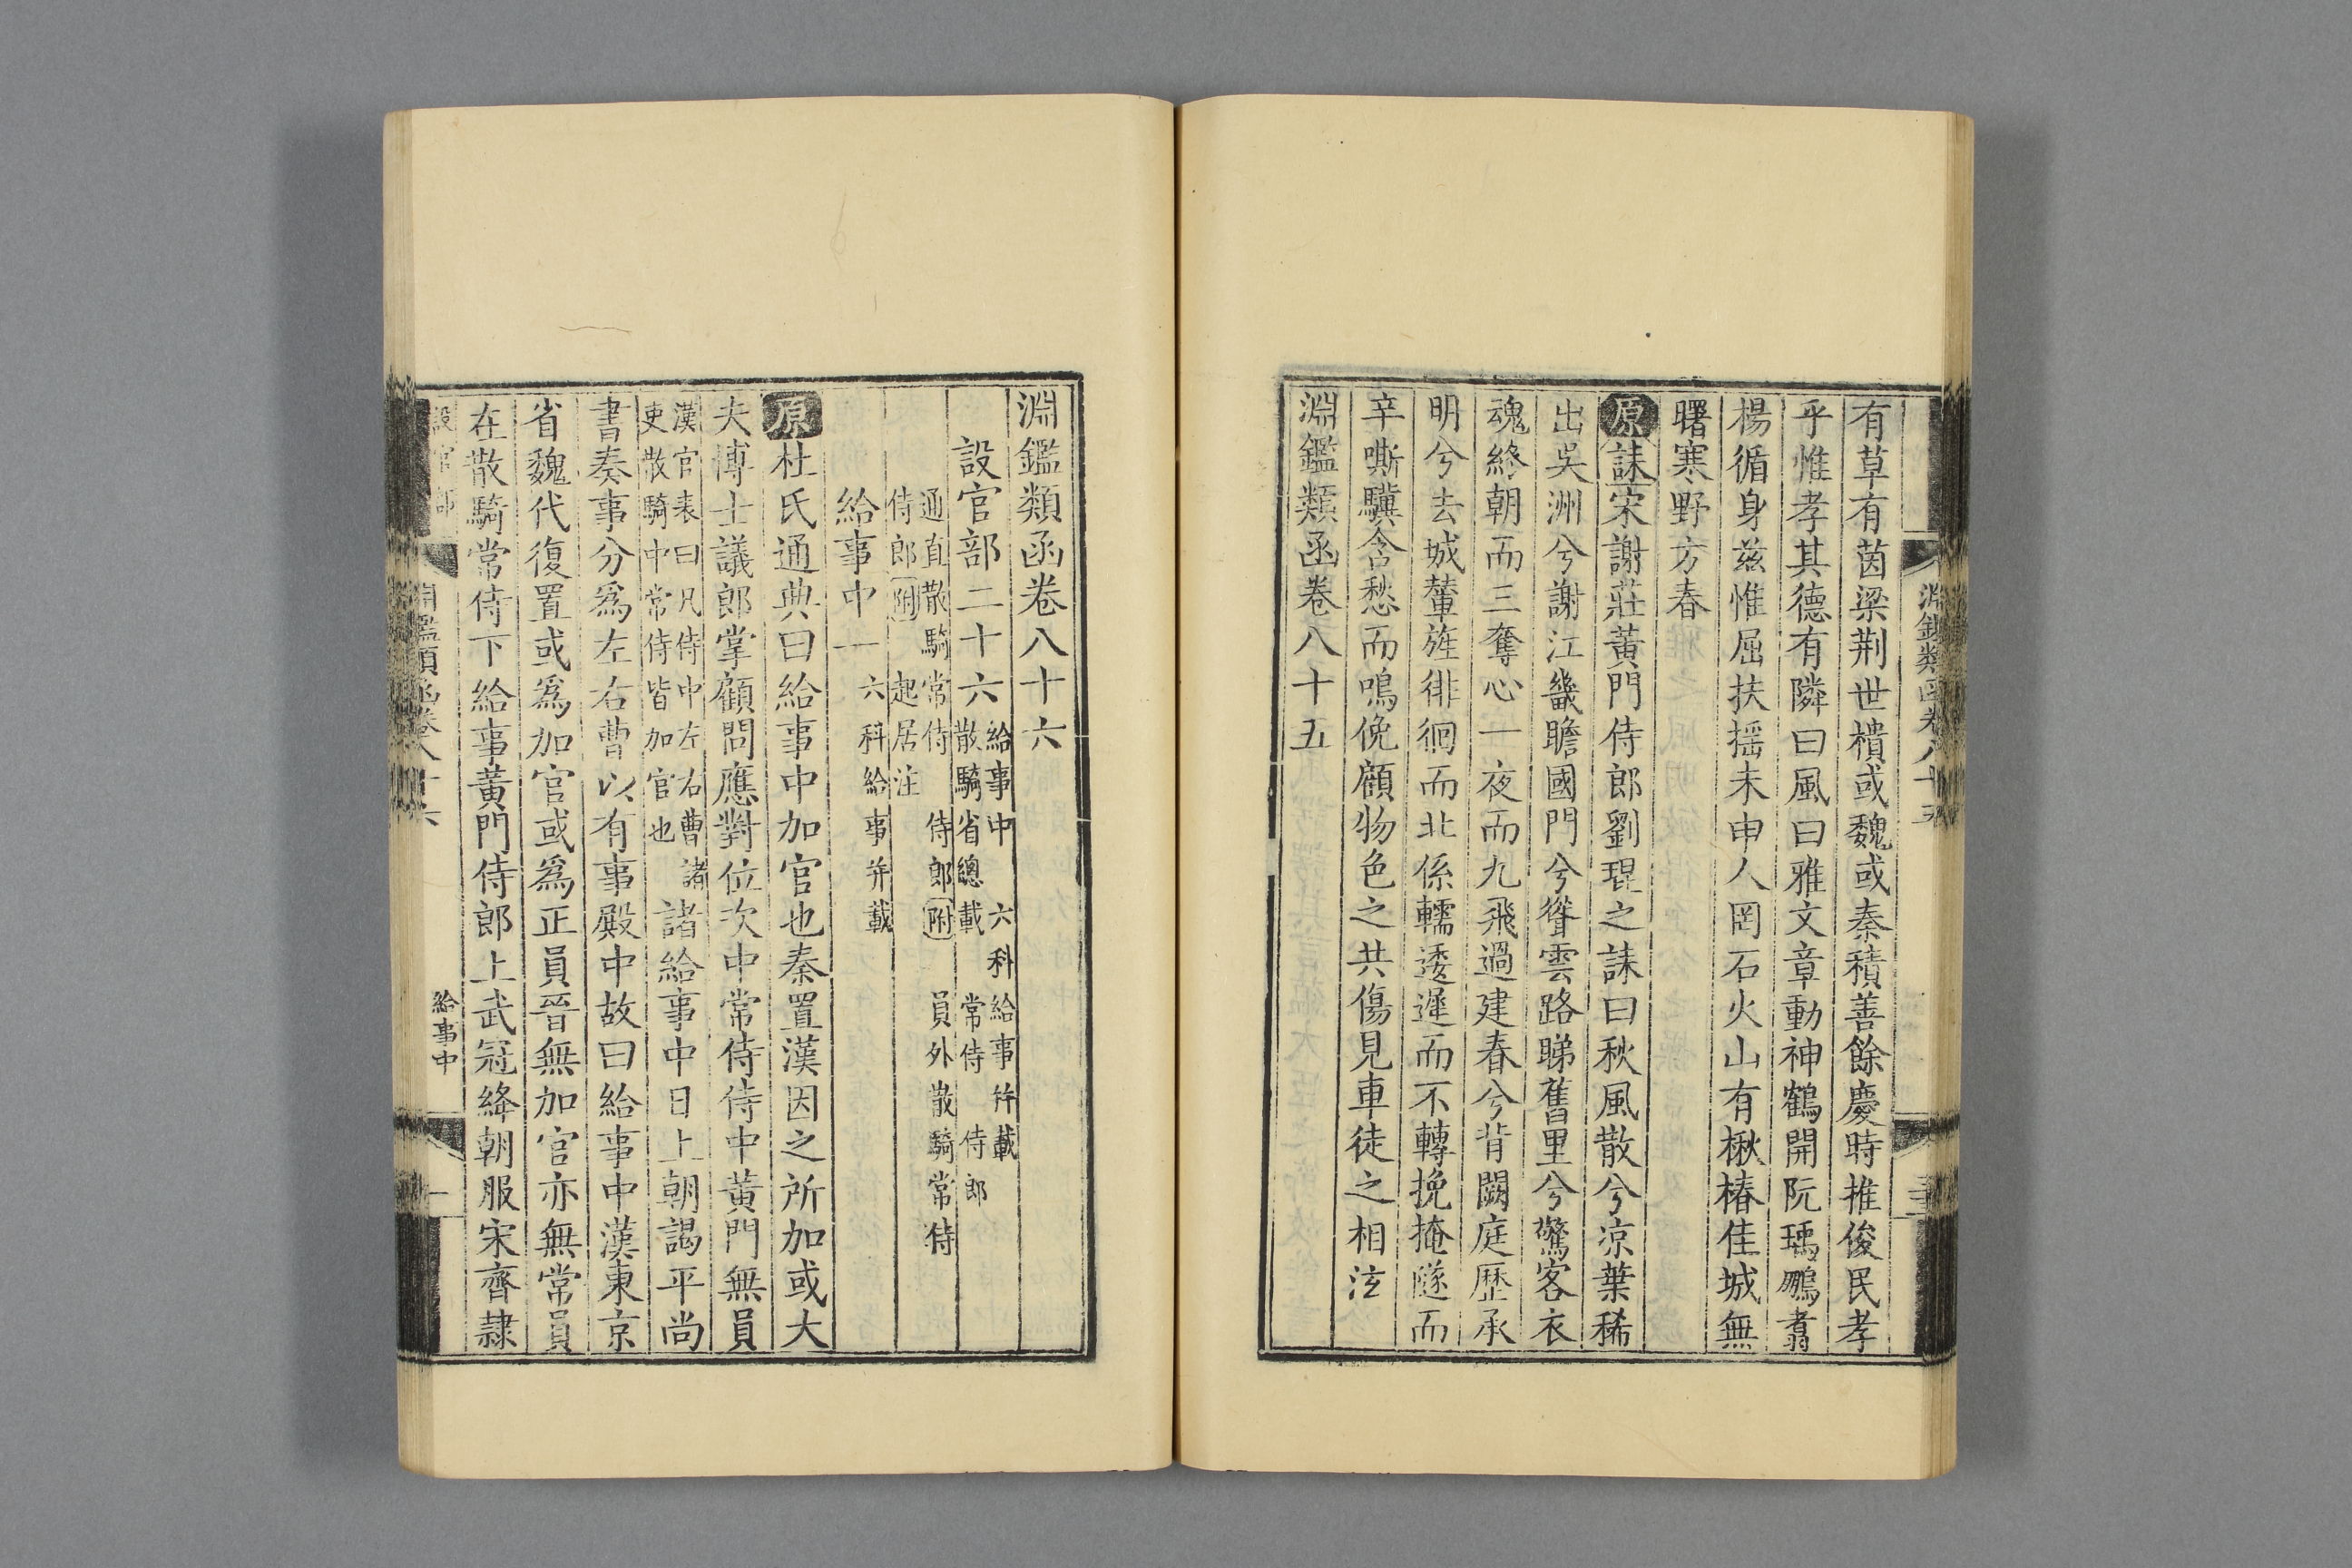 有草有茵梁荆世樻或魏或秦積善餘慶時推俊民孝
乎惟孝其德有隣曰風曰雅文章動神鶴開阮瑀鵬翥
楊循身兹惟屈扶揺未申人罔石火山有楸椿佳城無
曙寒野方春
原誄宋謝莊黃門侍郎劉琨之誄曰秋風散兮凉葉稀
出吳洲兮謝江畿瞻國門兮聳雲路睇舊里兮驚客衣
魂終朝而三奪心一夜而九飛過建春兮背闕庭歷承
明兮去城輦旌徘徊而北係轜逶遲而不轉挽掩隧而
辛嘶驥含愁而鳴俛顧物色之共傷見車徒之相泫
淵鑑類函卷八十五
淵鑑類函卷八十六
設官部二十六
給事中 六科給事中并載
散騎省總載 常侍 侍郎
通直散騎常侍 侍郎附 員外散騎常侍
侍郎附 起居注
給事中一 六科給事并載
原杜氏通典曰給事中加官也秦置漢因之所加或大
夫博士議郎掌顧問應對位次中常侍侍中黃門無員
漢官表曰凡侍中左右曹諸
吏散騎中常侍皆加官也
諸給事中日上朝謁平尚
書奏事分爲左右曹以有事殿中故曰給事中漢東京
省魏代復置或爲加官或爲正員晉無加官亦無常員
在散騎常侍下給事黃門侍郎上武冠絳朝服宋齊隷
設官部
淵鑑類函卷八十六
給事中
一